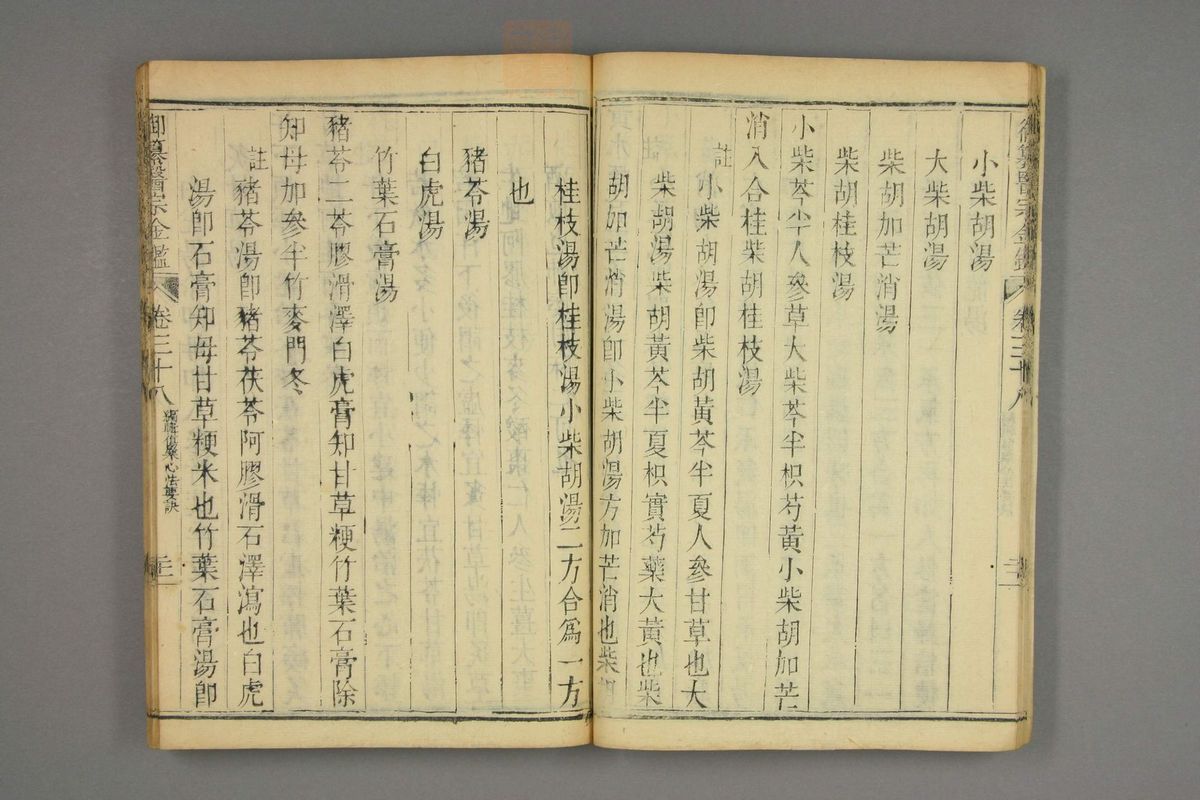 小柴胡湯
大柴胡湯
柴胡加芒消湯
柴胡桂枝湯
小柴芩半人參草大柴芩半枳芍黃小柴胡加芒
消入合桂柴胡桂枝湯
註
小柴胡湯卽柴胡黃芩半夏人參甘草也大
柴胡湯柴胡黃芩半夏枳實芍藥大黃也柴
胡加芒消湯卽小柴胡湯方加芒消也柴胡
桂枝湯卽桂枝湯小柴胡湯二方合爲一方
也
豬苓湯
白虎湯
竹葉石膏湯
豬苓二苓膠滑澤白虎膏知甘草粳竹葉石膏除
知母加參半竹麥門冬
註
豬苓湯卽豬苓茯苓阿膠滑石澤瀉也白虎
湯卽石膏知母甘草粳米也竹葉石膏湯卽
御纂醫宗金鑑
卷三十八
傷寒雜病心法要訣